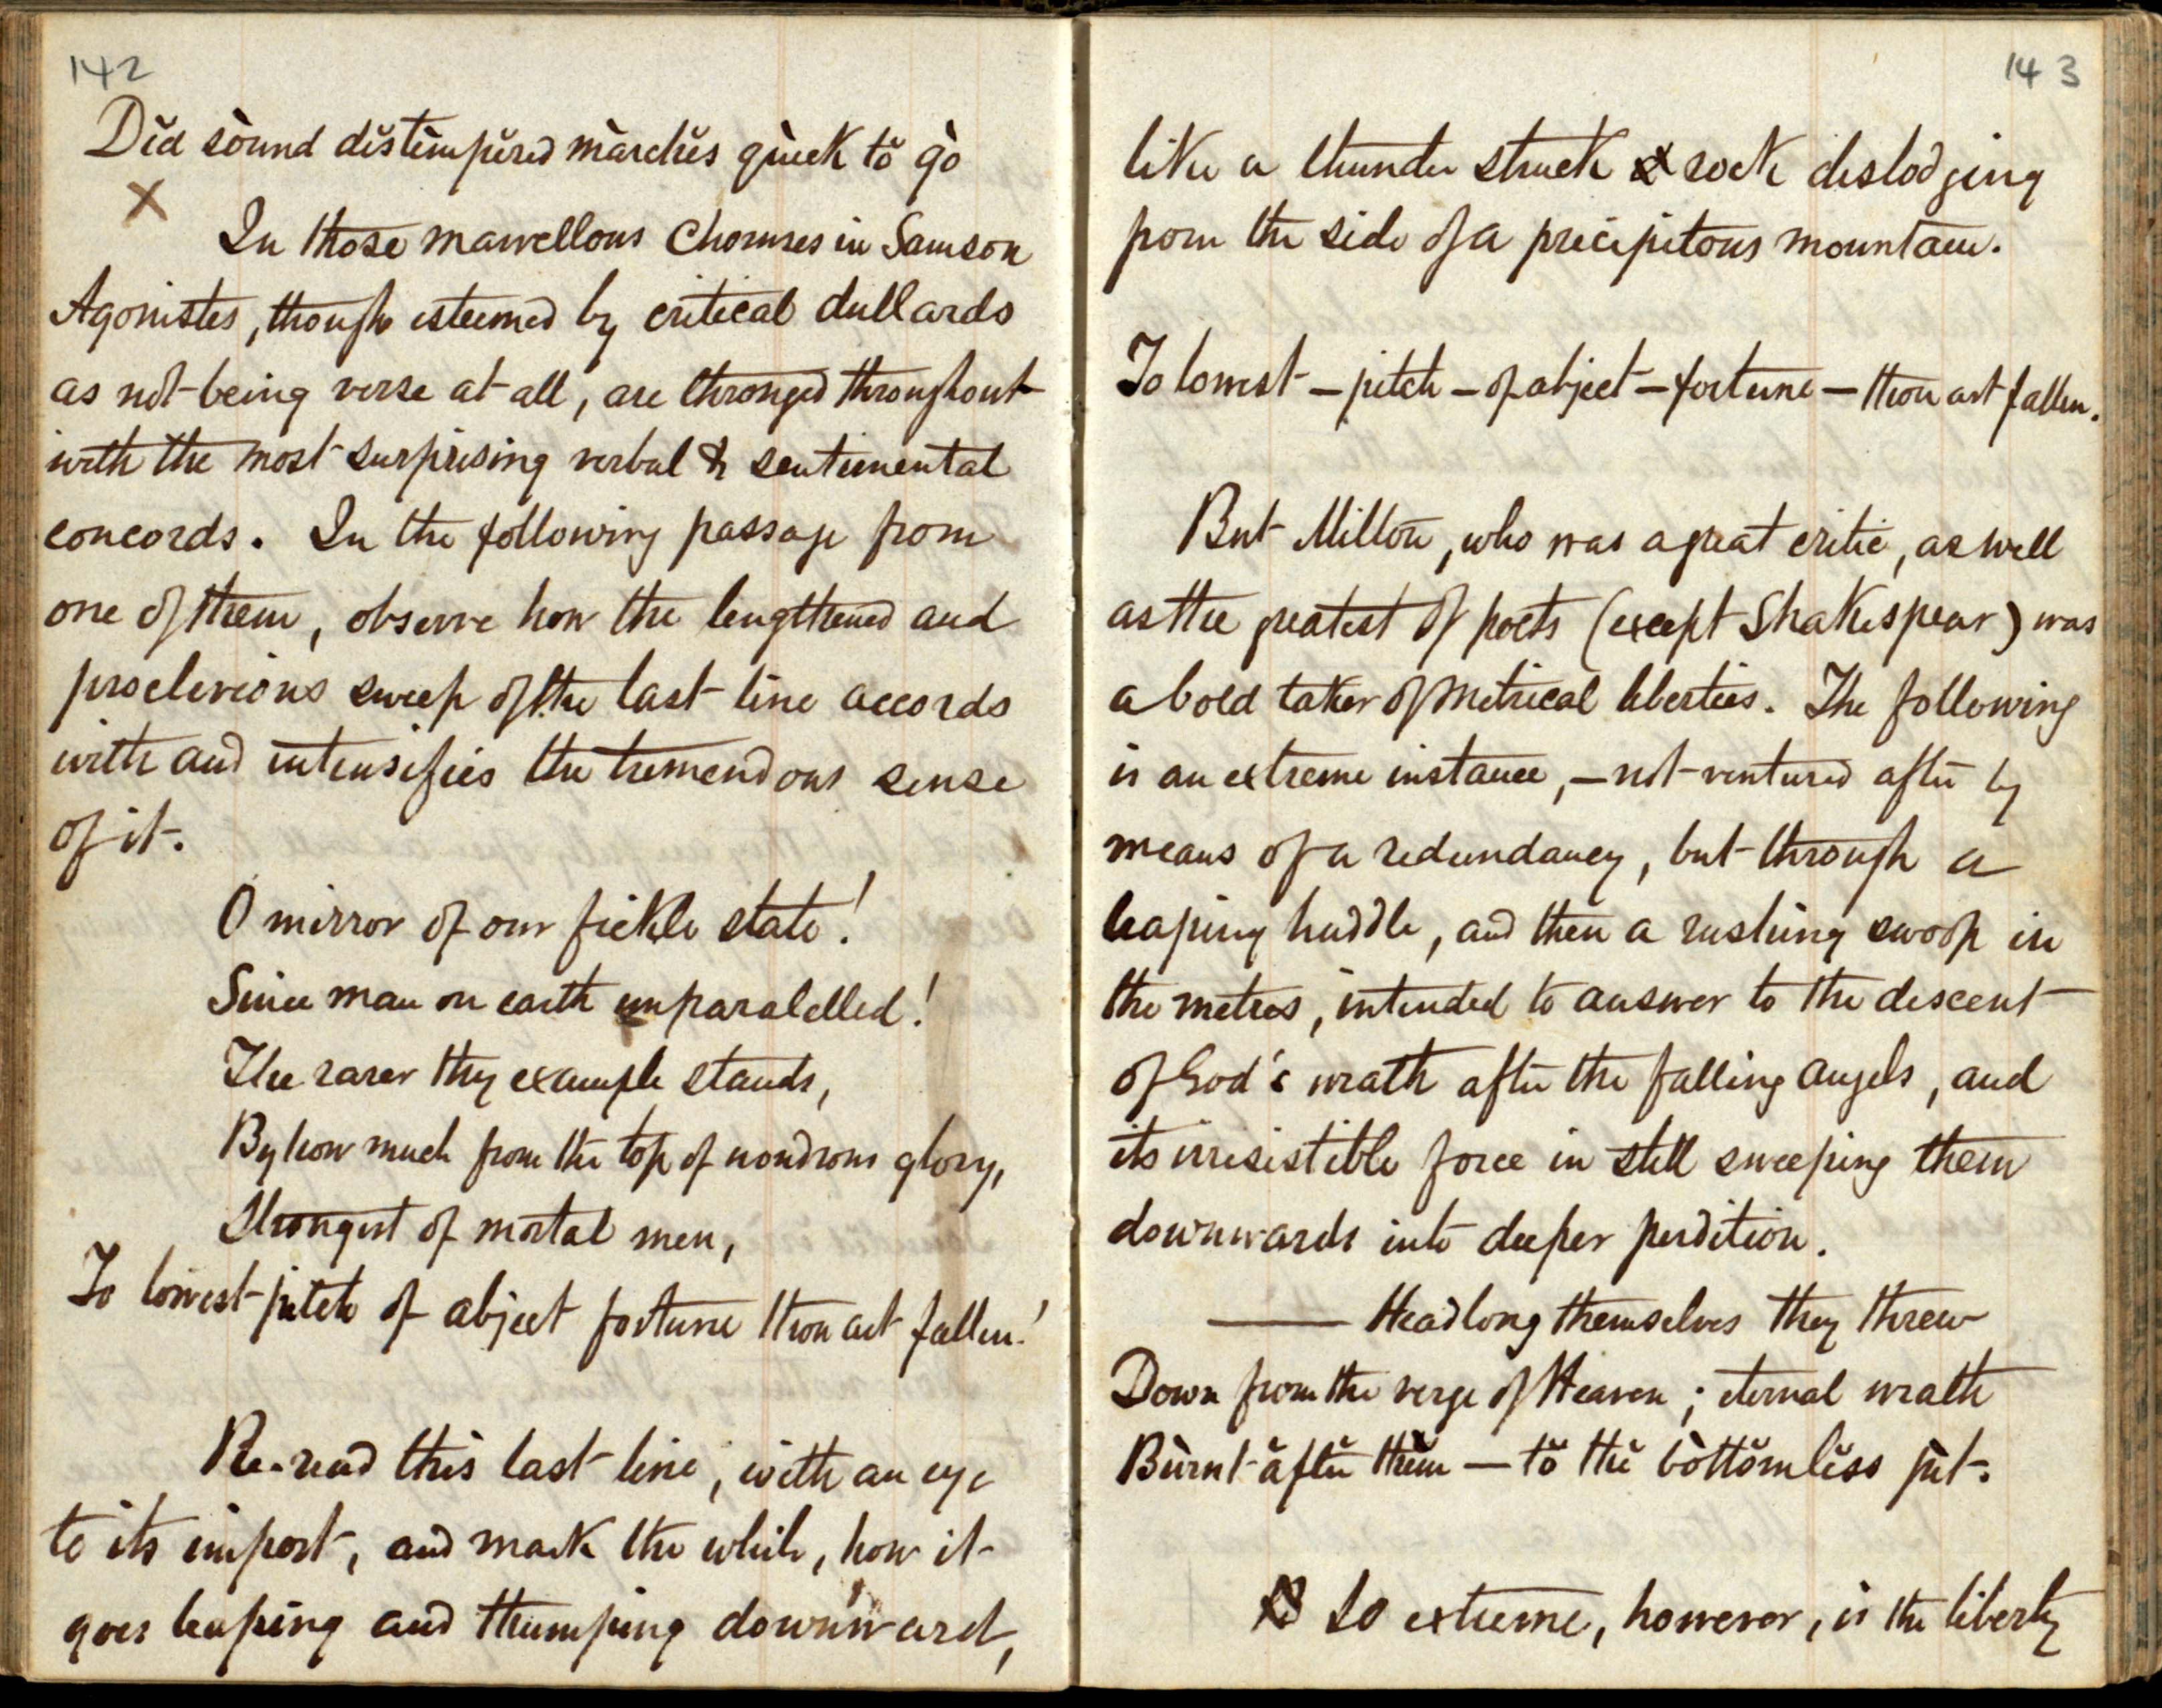 142
Dĭd sòund dĭstèmpĕred màrchĕs qùick tŏ gò
X
In those marvellous Choruses in Samson
Agonistes, though esteemed by critical dullards
as not being verse at all, are thronged throughout
with the most surprising verbal & sentimental
concords. In the following passage from
one of them, observe how the lengthened and
proclivious sweep of the last line accords
with and intensifies the tremendous sense
of it.
O mirror of our fickle state!
Since man on earth unparalelled!
The rarer thy example stands,
By how much from the top of wondrous glory,
Strongest of mortal men,
To lowest pitch of abject fortune thou art fallen!
Re-read this last line, with an eye
to its import, and mark the while, how it
goes leaping and thumping downward,
143
like a thunder struck rock dislodging
from the side of a precipitous mountain.
To lowest – pitch – of abject – fortune – thou art fallen.
But Milton, who was a great critic, as well
as the greatest of poets (except Shakespear) was
a bold taker of metrical liberties. The following
is an extreme instance, – not ventured after by
means of a redundancy, but through a
leaping huddle, and then a rushing swoop in
the metres, intended to answer to the descent
of God's wrath after the falling angels, and
its irresistible force in still sweeping them
downwards into deeper perdition.
—— Headlong themselves they threw
Down from the verge of Heaven; eternal wrath
Bùrnt ăftĕr thĕm – tŏ thĕ bòttŏmlĕss pìt.
So extreme, however, is the liberty